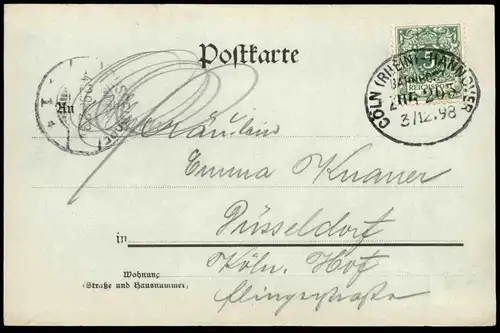 Postkarte
5
REICHSPOST
CÖLN (RHEIN)-HANNOVER
BAHNPOST
ZUG 21
3/12.98
1
An
Fräulein
Emma Knauer
in Düsseldorf
Köln. Hof
Wohnung
(Straße und Hausnummer)
Flingerstraße